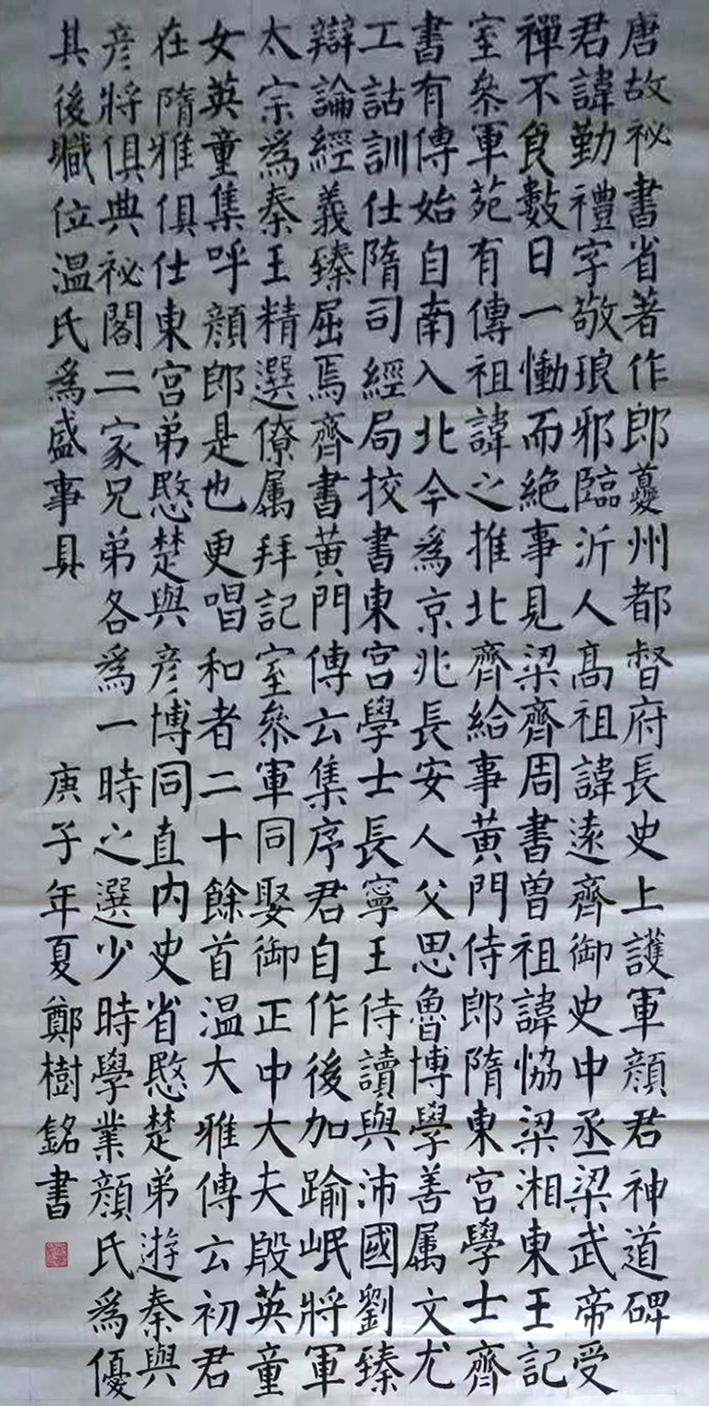 唐故祕書省著作郎夔州都督府長史上護軍顏君神道碑
君諱勤禮字敬琅邪臨沂人高祖諱遠齊御史中丞梁武帝受
禪不食數日一慟而絶事見梁齊周書曾祖諱恊梁湘東王記
室叅軍苑有傳祖諱之推北齊給事黃門侍郎隋東宮學士齊
書有傳始自南入北今為京兆長安人父思魯博學善属文尤
工詁訓仕隋司經局挍書東宮學士長寧王侍讀與沛國劉臻
辯論經義臻屈焉齊書黃門傳云集序君自作後加踰岷將軍
太宗為秦王精選僚属拜記室叅軍同娶御正中大夫殷英童
女英童集呼顏郎是也更唱和者二十餘首温大雅傳云初君
在隋雅俱仕東宮弟愍楚與彥博同直内史省愍楚弟遊秦與
彥將俱典祕閣二家兄弟各為一時之選少時學業顏氏為優
其後職位温氏為盛事具
庚子年夏鄭樹銘書